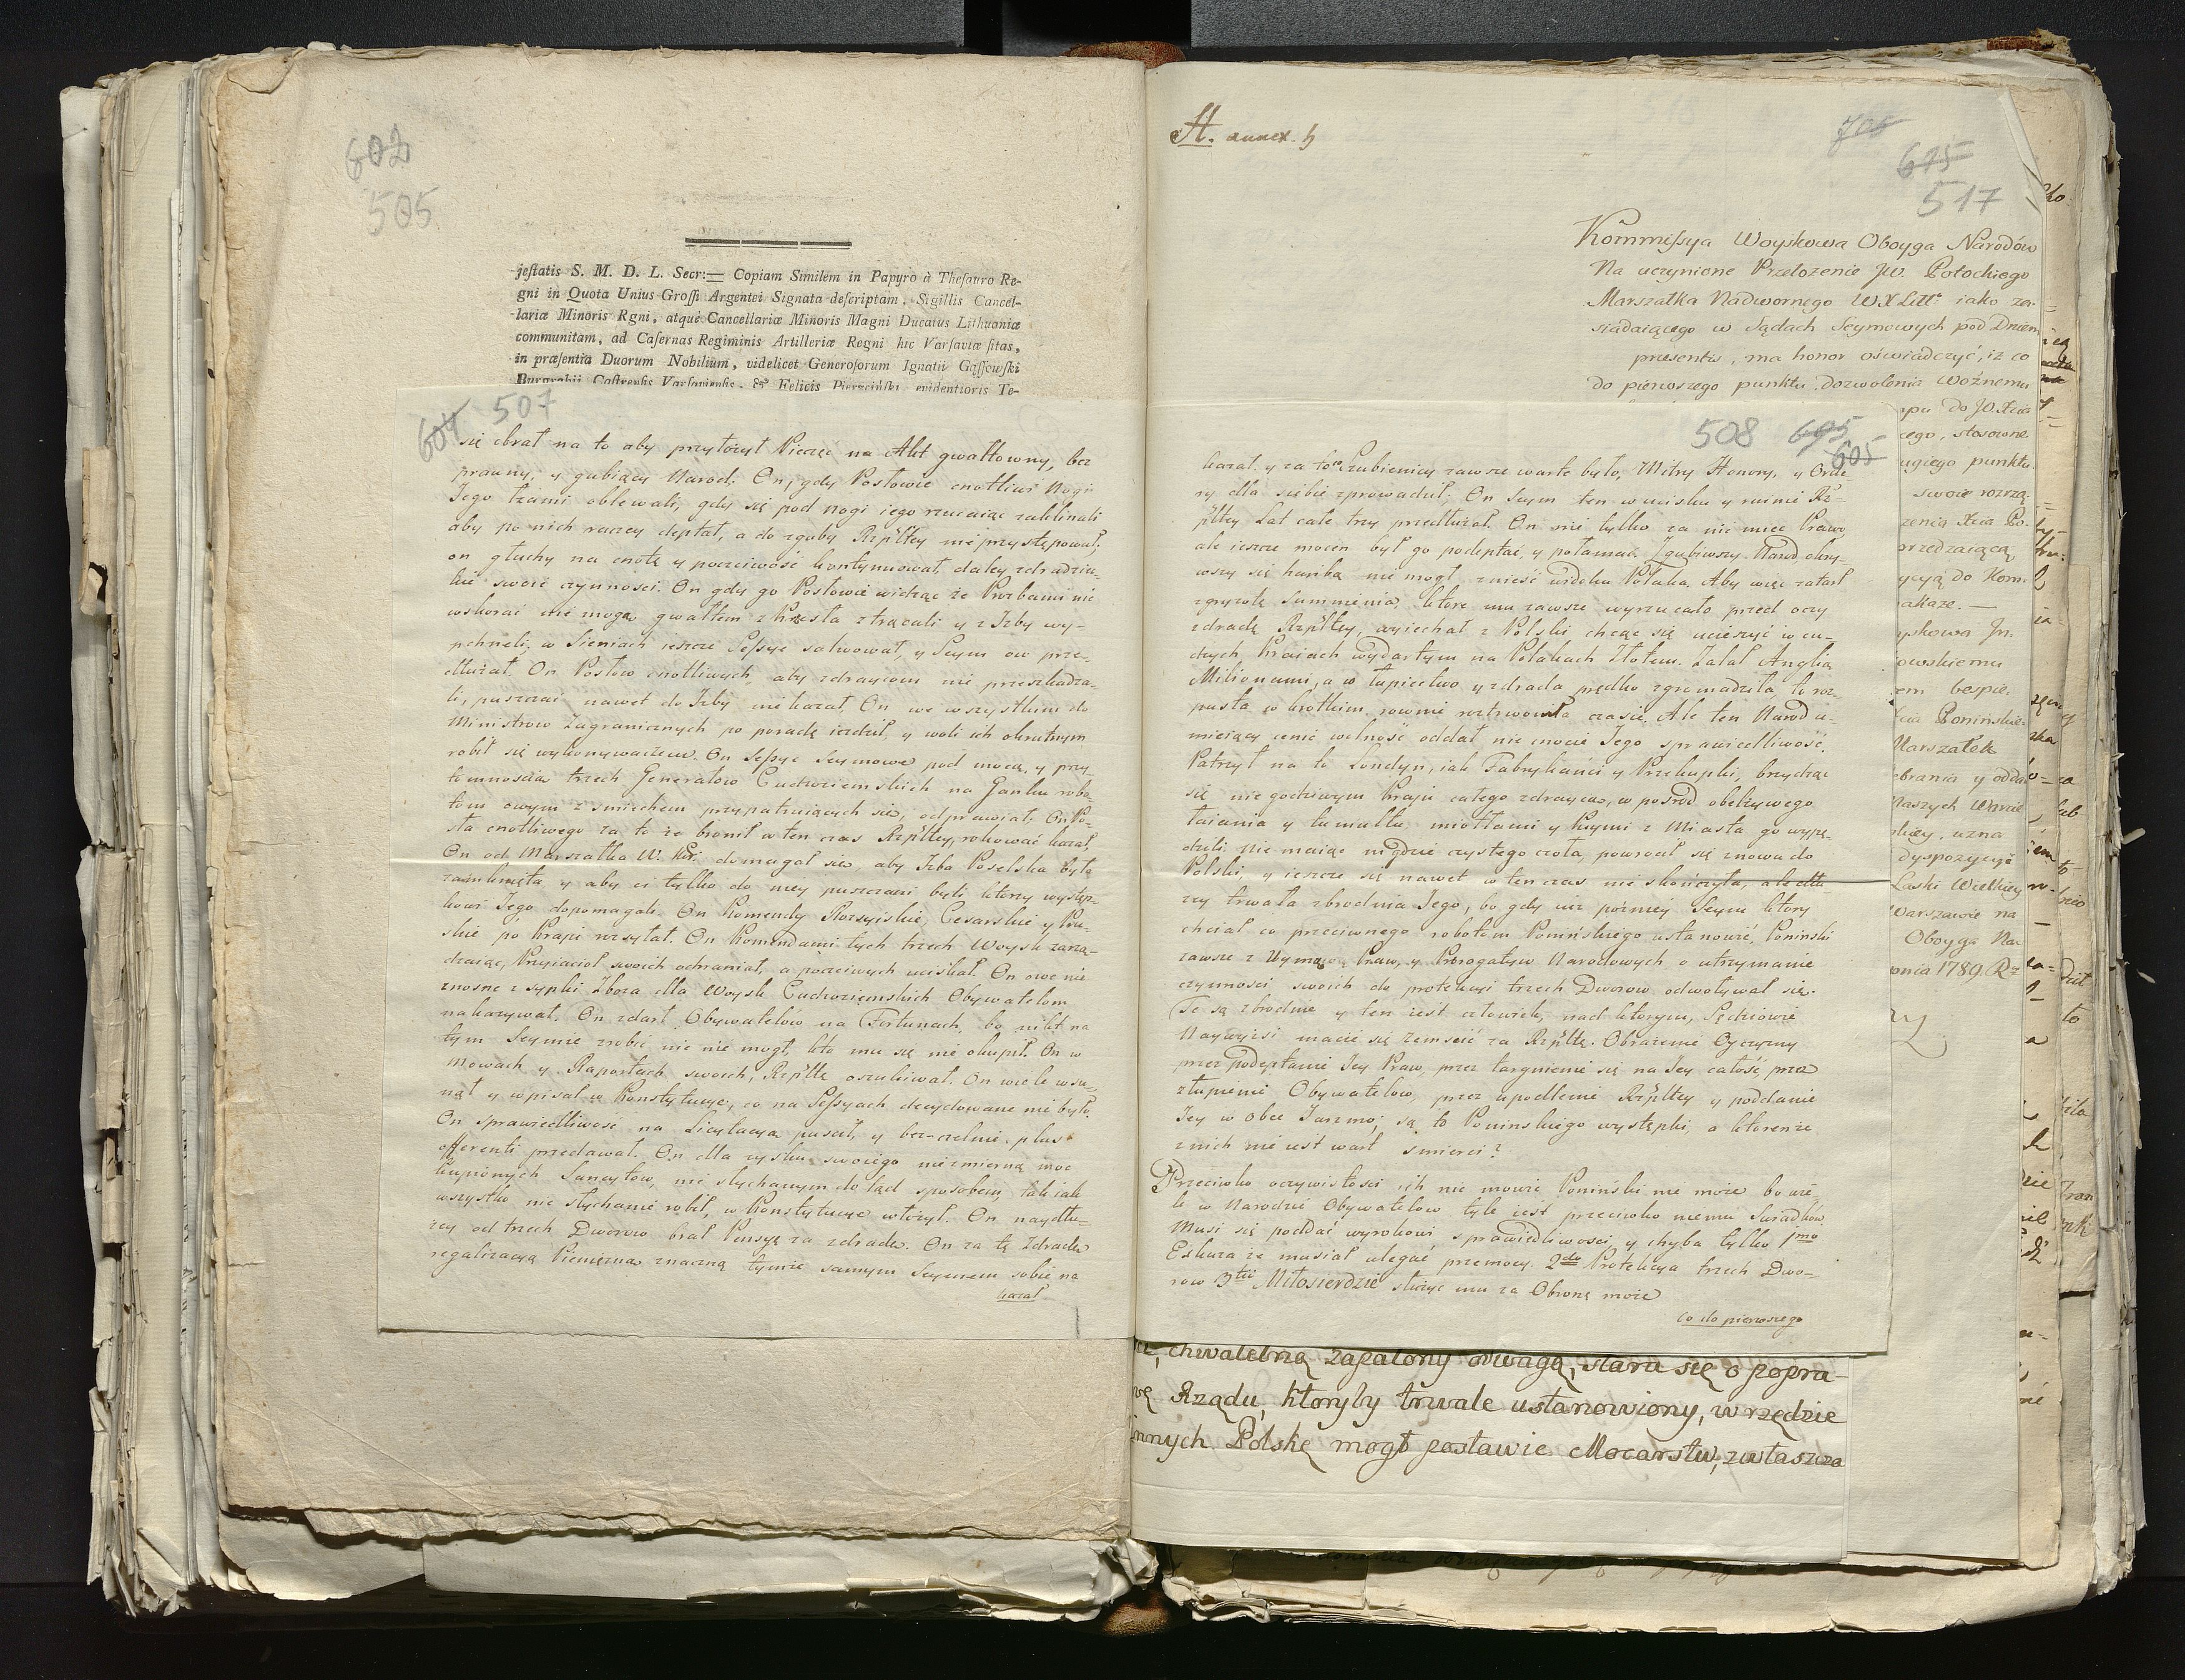 602
505
jeſtatis S. M. D. L. Secr:= Copiam Similem in Papyro à Theſauro Re-
gni in Quota Unius Groſſi Argentei Signata deſcriptam, Sigillis Cancel-
lariæ Minoris Rgni, atquè Cancellariæ Minoris Magni Ducatus Lithuaniæ
communitam, ad Caſernas Regiminis Artilleriæ Regni hic Varſaviæ ſitas,
in præſentia Duorum Nobilium, videlicet Generoſorum Ignatii Gąſſowſki
Burgrabii Caſtrenſis Varſavienſis, & Felicis Pierzcińſki, evidentioris Te-
604 507
się ebrał na to aby przytożył Pieczęć na Akt gwałtowny, bez
prawny, y gubiący Narod; On, gdy Posłowie cnotliwi Nogi
Jego łzami oblewali, gdy się pod nogi iego rzucaiąc zaklinali
aby po nich raczey deptał, a do zguby Rzpltey nie przystępował,
on głuchy na cnotę y poczciwość kontynuował daley zdradziec-
kie swoie czynności. On gdy go Posłowie widząc że Prozbami nic
wskorać nie mogą gwałtem z Krzesła ztrącali y z Izby wy-
pchneli; w Sieniach ieszcze Seſsye salwował, y Seym ow prze-
dłużał. On Posłow cnotliwych, aby zdraycom nie przeszkadza-
li, puszczać nawet do Izby nie kazał. On we wszystkim do
Ministrow Zagranicznych po poradę iezdził, y woli ich okrutnym
robił się wykonywaczem. On Seſsye Seymowe pod mocą, y przy-
tomnością trzech Generałow Cudzoziemskich na Ganku robo-
tom owym z smiechem przypatruiących się, odprawiał. On Po-
sła cnotliwego za to że bronił w ten czas Rzpltey, rokować kazał,
On od Marszałka W. Kor. domagał się, aby Izba Poselska była
zamknięta y aby ci tylko do niey puszczani byli ktorzy występ-
kowi Jego dopomagali. On Komendy Rossyiskie, Cesarskie y Pru-
skie po Kraju rozsyłał. On Komendami tych trzech Woysk zarzą-
dzaiąc, Przyiacioł swoich ochraniał, a poczciwych uciskał. On owe nie
znosne zsypki Zboża dla Woysk Cudzoziemskich Obywatelom
nakazywał. On zdarł Obywatelow na Fortunach, bo nikt na
tym Seymie zrobić nic nie mogł, kto mu się nie okupił. On w
Mowach y Raportach swoich, Rzpltę oszukiwał. On wiele wsu-
nął y wpisał w Konstytucye, co na Seſsyach decydowane nie było.
On sprawiedliwość na Licytacyą puscił, y bez-czelnie plus
offerenti przedawał. On dla zysku swoiego niezmierną moc
kupionych Sancytow, nie słychanym do tąd sposobem, tak iak
wszystko nie słychanie robił, w Konstytucye włożył. On naydłu-
żey od trzech Dworow brał Pensyę za zdradę. On za tę Zdradę
regalizacyą Pieniężną znaczną tymże samym Seymem sobie na
kazał
A. annex. h
705
675
517
Kommiſsya Woyskowa Oboyga Narodów
Na uczynione Przełożenie JW. Potockiego
Marszałka Nadwornego WXLitt: iako za-
siadaiącego w Sądach Seymowych pod Dniem
presentis, ma honor oświadczyć, iż co
do pierwszego punktu dozwolenia Woźnemu
508 695
605
kazał. y za to Szubienicy zawsze warte było, Mitry Honory, y Orde-
ry dla siebie zprowadził; On Seym ten w ucisku y ruinie Rz-
pltey Lat całe trzy przedłużał. On nie tylko za nic miec Prawo,
ale ieszcze mocen był go podeptać, y połamać. Zgubiwszy Narod okry-
wszy się hańbą nie mogł znieść widoku Polaka. Aby więc zatarł
zgryzotę Summienia, ktore mu zawsze wyrzucało przed oczy
zdradę Rzpltey, wyiechał z Polski chcąc się ucieszyć w cu-
dzych Kraiach wydartym na Polakach Złotem. Zalał Anglią
Milionami, a co łupiestwo y zdrada prędko zgromadziła, to roz-
pusta w krotkim rownie roztrwoniła czasie. Ale ten Narod u-
mieiący cenić wolność oddał nie cnocie Jego sprawiedliwość.
Patrzył na to Londyn, iak Fabrykańci y Przekupki, brzydząc
się niegodziwym Kraju całego zdraycą, w posrod obelżywego
łaiania y tumultu miotłami y Kiymi z Miasta go wypę-
dzili. Nie maiąc nigdzie czystego czoła, powrocił się znowu do
Polski, y ieszcze się nawet w ten czas nie skończyła, ale dłu-
ży trwała zbrodnia Jego, bo gdy iuż poźniey Seym ktory
chciał co przeciwnego robotom Ponińskiego ustanowić, Poninski
zawsze z Uymą Praw, y Prerogatyw Narodowych o utrzymanie
czynności swoich do protekcyi trzech Dworow odwoływał się.
Te są zbrodnie y ten iest człowiek, nad ktorym, Sędziowie
Naywyżsi macie się zemscić za Rzpltę. Obrażenie Oyczyzny
przez podeptanie Jey Praw, przez targnienie się na Jey całość, przez
złupienie Obywatelow, przez upodlenie Rzpltey y poddanie
Jey w obce Jarzmo; są to Poninskiego występki, a ktorenże
z nich nie iest wart smierci?
Przeciwko oczywistości ich nic mowić Poniński nie może bo wie-
le w Narodzie Obywatelow tyle iest przeciwko niemu Swiadkow.
Musi się poddać wyrokowi sprawiedliwości, y chyba tylko 1mo
Exkuza że musiał ulegać przemocy. 2do Protekcya trzech Dwo-
row 3tii Miłosierdzie służyć mu za Obronę może
co do pierwszego
ępu do JO. Xcia
cego, stosowne
ugiego punktu
swoie rozrzą-
zenia Xcia Po-
przedzaiącą
ycyą do Kom-
akaże. —
yskowa Jn.
owskiemu
em bespie-
Xcia Ponińskie-
Marszałek
ebrania y odda-
Naszych Warcie
uzna
dyspozycyi
Laski Wielkiey
Warszawie na
Oboyga Na-
pnia 1789. R.
chwalebną zapalony odwagą, stara się o popra-
wę Rządu, ktoryby trwale ustanowiony, w rzędzie
innych Polskę mogł postawic Mocarstw, zwłaszcza